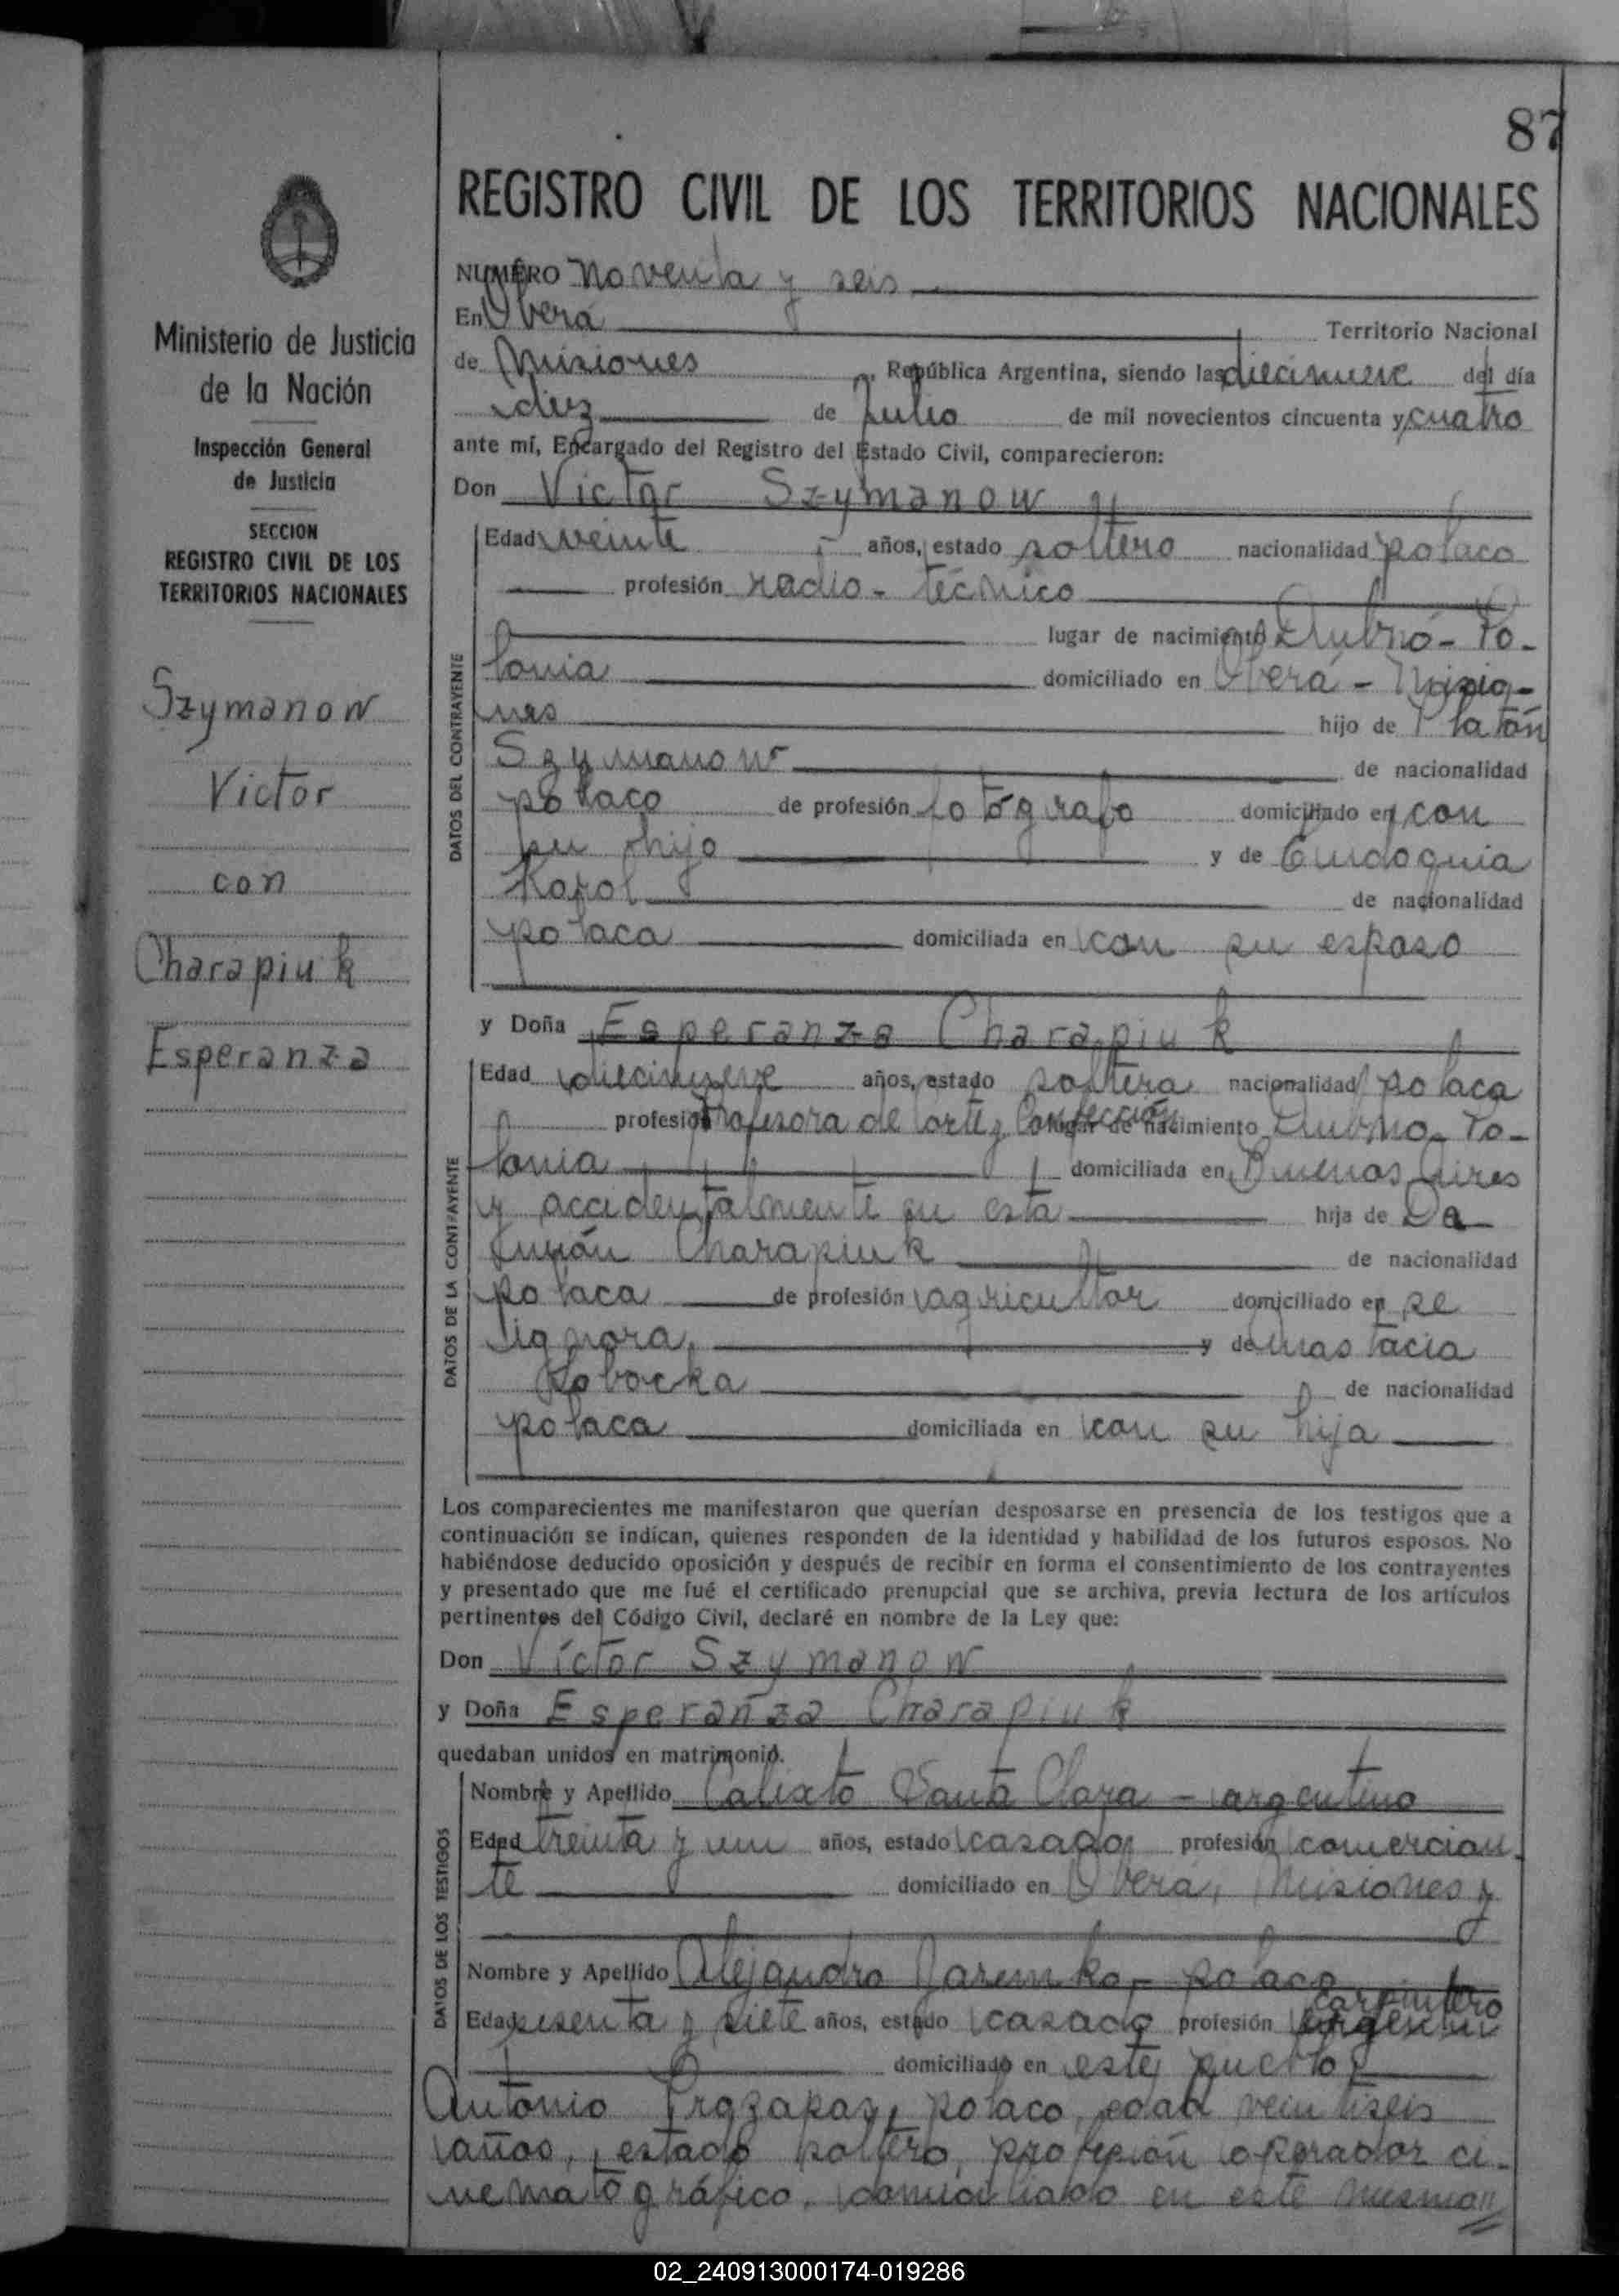 87
REGISTRO CIVIL DE LOS TERRITORIOS NACIONALES
NUMERO noventa y seis
En Oberá Territorio Nacional
de Misiones, República Argentina, siendo las diecinueve del día
diez de julio de mil novecientos cincuenta y cuatro
ante mí, Encargado del Registro del Estado Civil, comparecieron:
Don Victor Szymanow
DATOS DEL CONTRAYENTE
Edad veinte años, estado soltero nacionalidad polaco
profesión radio-técnico
lugar de nacimiento Dubnó-Po-
lonia domiciliado en Oberá - Misio-
nes hijo de Platón
Szymanow de nacionalidad
polaco de profesión fotógrafo domiciliado en con
su hijo y de Eudoquia
Korol de nacionalidad
polaca domiciliada en con su esposo
y Doña Esperanza Charapiuk
DATOS DE LA CONTRAYENTE
Edad diecinueve años, estado soltera nacionalidad polaca
profesión Profesora de Corte y Confección lugar de nacimiento Dubno-Po-
lonia domiciliada en Buenos Aires
y accidentalmente en esta hija de Da
Charapiuk de nacionalidad
polaca de profesión agricultor domiciliado en se
ignora, y de Anastacia
de nacionalidad
polaca domiciliada en con su hija
Los comparecientes me manifestaron que querían desposarse en presencia de los testigos que a
continuación se indican, quienes responden de la identidad y habilidad de los futuros esposos. No
habiéndose deducido oposición y después de recibir en forma el consentimiento de los contrayentes
y presentado que me fué el certificado prenupcial que se archiva, previa lectura de los artículos
pertinentes del Código Civil, declaré en nombre de la Ley que:
Don Víctor Szymanow
y Doña Esperanza Charapiuk
quedaban unidos en matrimonio.
DATOS DE LOS TESTIGOS
Nombre y Apellido Calixto Santa Clara - argentino
Edad treinta y un años, estado casado profesión comercian-
te domiciliado en Oberá, Misiones y
Nombre y Apellido Alejandro Jaremko, - polaco
carpintero
Edad sesenta y siete años, estado casado profesión
domiciliado en este pueblo y
Antonio polaco, edad veintiseis
años, estado soltero, profesión operador ci-
nematográfico, domiciliado en este mismo //
Ministerio de Justicia
de la Nación
Inspección General
de Justicia
SECCION
REGISTRO CIVIL DE LOS
TERRITORIOS NACIONALES
Szymanow
Victor
con
Charapiuk
Esperanza
02_240913000174-019286